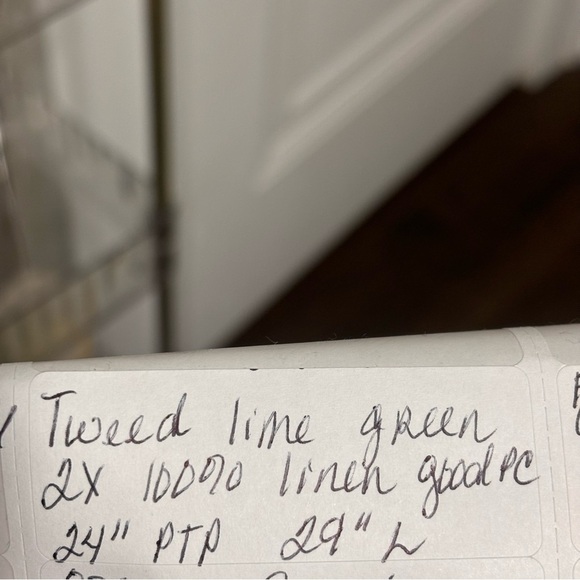 Tweed lime green
2X 100% linen good PC
24" PTP 29" L